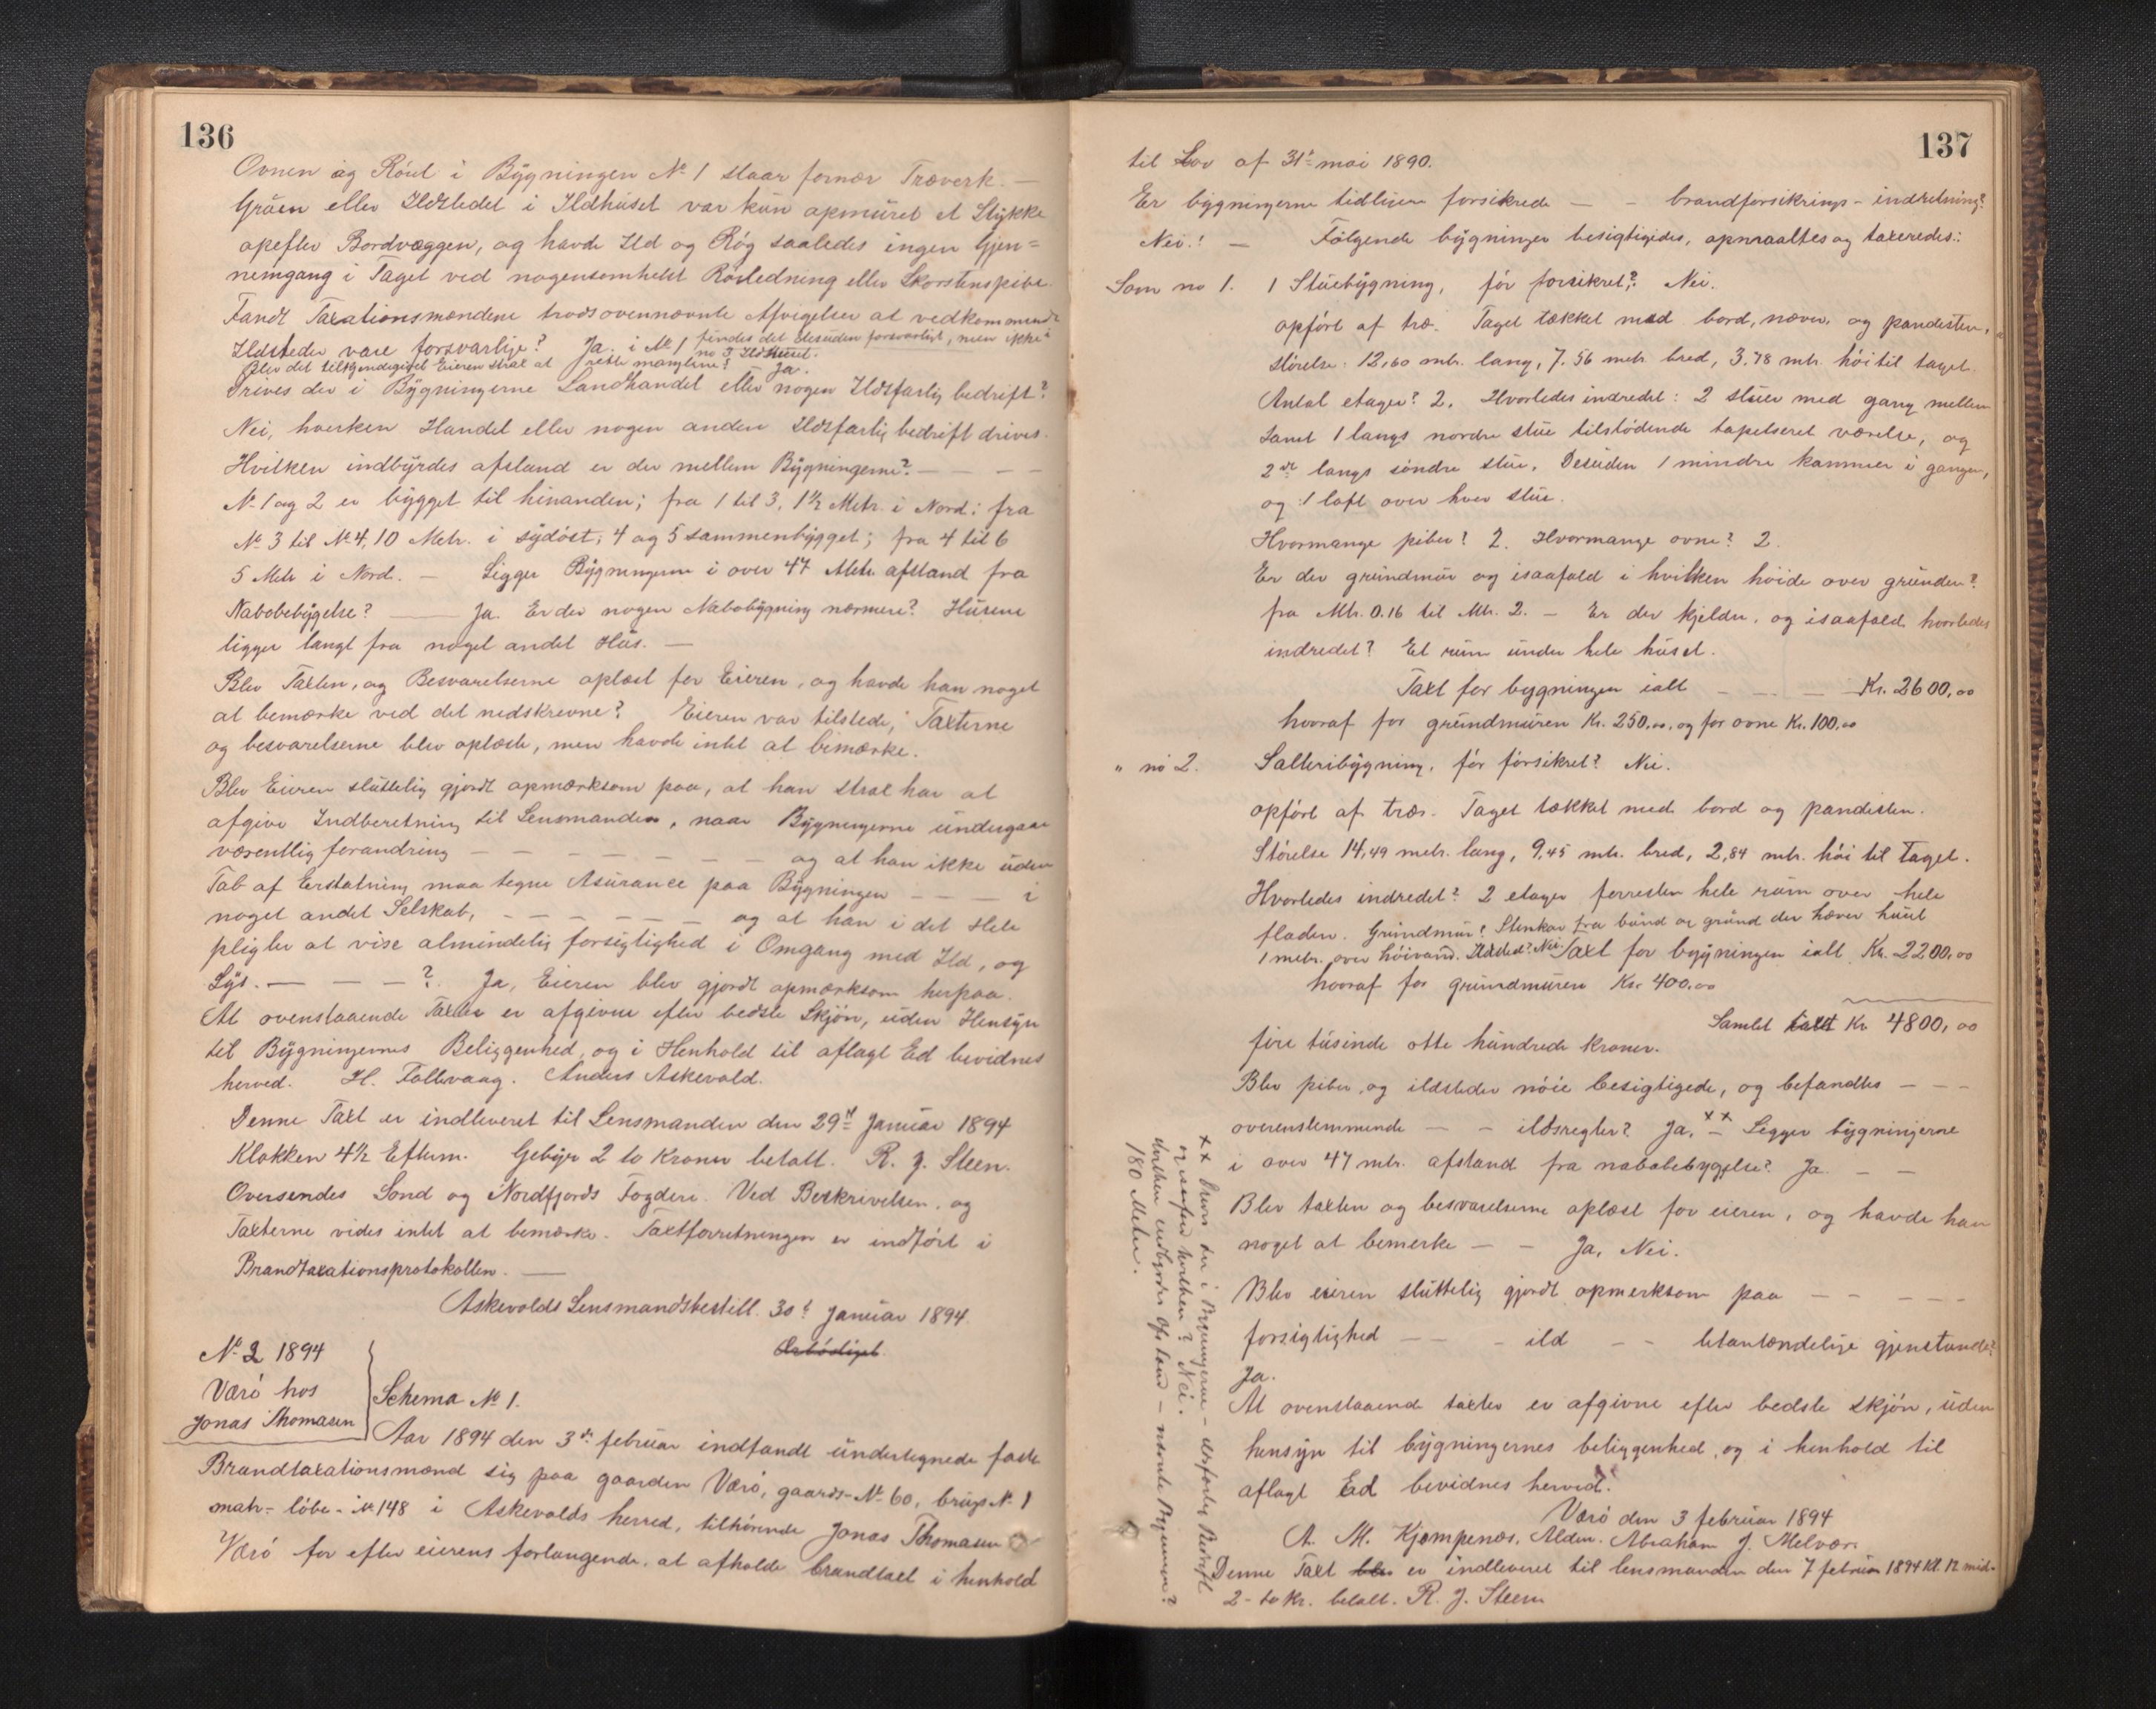 136
Ovnen og Röret i Bygningen No 1 staar fornær Træverk. —
Gruen eller Ildstedet i Ildhuset var kun opmuret et Stykke
opefter Bordvæggen, og havde Ild og Røg saaledes ingen Gjen=
nemgang i Taget ved nogensomhelst Rörledning eller Skorstenspibe.
Fandt Taxationsmændene trods ovennævnte Afvigelser at vedkommende
Ildsteder vare forsvarlige? Ja. i No 1 findes det desuden forsvarligt, men ikke i
no 3 Ildhuset.
Blev det tilkjendegivet Eieren skal at rette manglene? – Ja.
Drives der i Bygningerne Landhandel eller nogen Ildsfarlig bedrift?
Nei, hverken Handel eller nogen anden Ildsfarlig bedrift drives.
Hvilken indbyrdes afstand er der mellem Bygningerne? — — — —
No 1 og 2 er bygget til hinanden; fra 1 til 3, 1½ Metr. i Nord; fra
No 3 til No 4, 10 Metr. i sydöst; 4 og 5 sammenbygget; fra 4 til 6
5 Metr i Nord. — Ligger Bygningerne i over 47 Metr. afstand fra
Nabobebygelse? — Ja. Er der nogen Nabobygning nærmere? Husene
ligger langt fra noget andet Hus. —
Blev Taxten, og Besvarelserne oplæst for Eieren, og havde han noget
at bemærke ved det nedskrevne? Eieren var tilstede, Taxterne
og besvarelserne blev oplæste, men havde intet at bimærke.
Blev Eieren sluttelig gjordt opmærksom paa, at han skal har at
afgive Indberetning til Lensmanden, naar Bygningerne undergaar
væsentlig forandring — — — — — — — og at han ikke uden
Tab af Erstatning maa tegne Asurance paa Bygningen — — — i
noget andet Selskab, — — — — — — og at han i det Hele
pligter at vise almindelig forsigtighed i Omgang med Ild, og
Lys. — — — ? Ja, Eieren blev gjordt opmærksom herpaa.
At ovenstaaende Taxter er afgivne efter bedste Skjön, uden Hensyn
til Bygningernes Beliggenhed, og i Henhold til aflagt Ed bevidnes
herved. H. Follevaag. Anders Askevold.
Denne Taxt er indleveret til Lensmanden den 29de Januar 1894
Klokken 4½ Efterm. Gebyr 2 to Kroner betalt. R. J. Steen.
Oversendes Sönd og Nordfjords Fogderi. Ved Beskrivelsen, og
Taxterne vides intet at bemærke. Taxtforretningen er indfört i
Brandtaxationsprotokollen. —
Askevolds Lensmandsbestill. 30te Januar 1894.
Ærbödigst
No 2 1894
Værö hos
Jonas Thomasen
Schema No 1.
Aar 1894 den 3de februar indfandt undertegnede faste
Brandtaxationsmænd sig paa gaarden Værö, gaards-No 60, brugs No 1
matr- löbe- No 148 i Askevolds herred, tilhörende Jonas Thomasen
Værö for efter eierens forlangende, at afholde brandtaxt i henhold
137
til Lov af 31te mai 1890.
Er bygningerne tidligere forsikrede — – brandforsikrings-indretning?
Nei.! — Fölgende bygninger besigtigedes, opmaaltes og taxeredes:
Som no 1. 1 Stuebygning, för forsikret? Nei.
opfört af træ. Taget tækket med bord, næver, og pandesten,
störelse: 12,60 mtr. lang, 7.56 metr. bred, 3.78 mtr. höi til taget.
Antal etager? 2. Hvorledes indredet: 2 stuer med gang mellem
samt 1 langs nordre stue tilstödende tapetseret værelse, og
2de langs söndre stue. Desuden 1 mindre kammer i gangen,
og 1 loft over hver stue.
Hvormange piber? 2. Hvormange ovne? 2.
Er der grundmur og isaafald i hvilken höide over grunden?
fra Mtr. 0.16 til Mtr. 2. — Er der kjelder, og isaafald hvorledes
indredet? Et rum under hele huset.
Taxt for bygningen ialt — — — Kr. 2600,00
hvoraf for grundmuren Kr. 250,00, og for ovne Kr. 100,00
" no 2. Salteribygning, för forsikret? Nei.
opfört af træ. Taget tækket med bord og pandesten.
Störelse 14,49 metr. lang, 9,45 mtr. bred, 2,84 mtr. höi til Taget.
Hvorledes indredet? 2 etager forresten hele rum over hele
fladen. Grundmur? Stenkar fra bund og grund der hæver huset
1 metr. over höivand. Ildsted? Nei. Taxt for bygningen ialt Kr. 2200,00
hvoraf for grundmuren Kr. 400,00
Samlet taxt Kr 4800,00
fire tusinde otte hundrede kroner.
Blev piber, og ildsteder nöie besigtigede, og befandtes — — —
overenstemmende — – ildsregler? Ja. ×× – Ligger bygningerne
i over 47 mtr. afstand fra nabobebyggelse? Ja. — —
Blev taxten og besvarelserne oplæst for eieren, og havde han
noget at bemerke — – Ja, Nei.
Blev eieren sluttelig gjordt opmerksom paa — – – – –
forsigtighed — – – ild – – letantændelige gjenstande?
Ja.
At ovenstaaende taxter er afgivne efter bedste skjön, uden
hensyn til bygningernes beliggenhed, og i henhold til
aflagt Ed bevidnes herved.
Værö den 3 februar 1894
A. M. Kjempenæs. Alden. Abraham J. Melvær.
Denne Taxt blev er indleveret til lensmanden den 7 februar 1894 Kl. 12 mid-
2 - to Kr. betalt. R. J. Steen
×× Drives der i Bygningerne – ildsfarlig Bedrift
og isaafald hvilken? Nei.
Hvilken indbyrdes Afstand – nævnte Bygninger?
180 Meter.